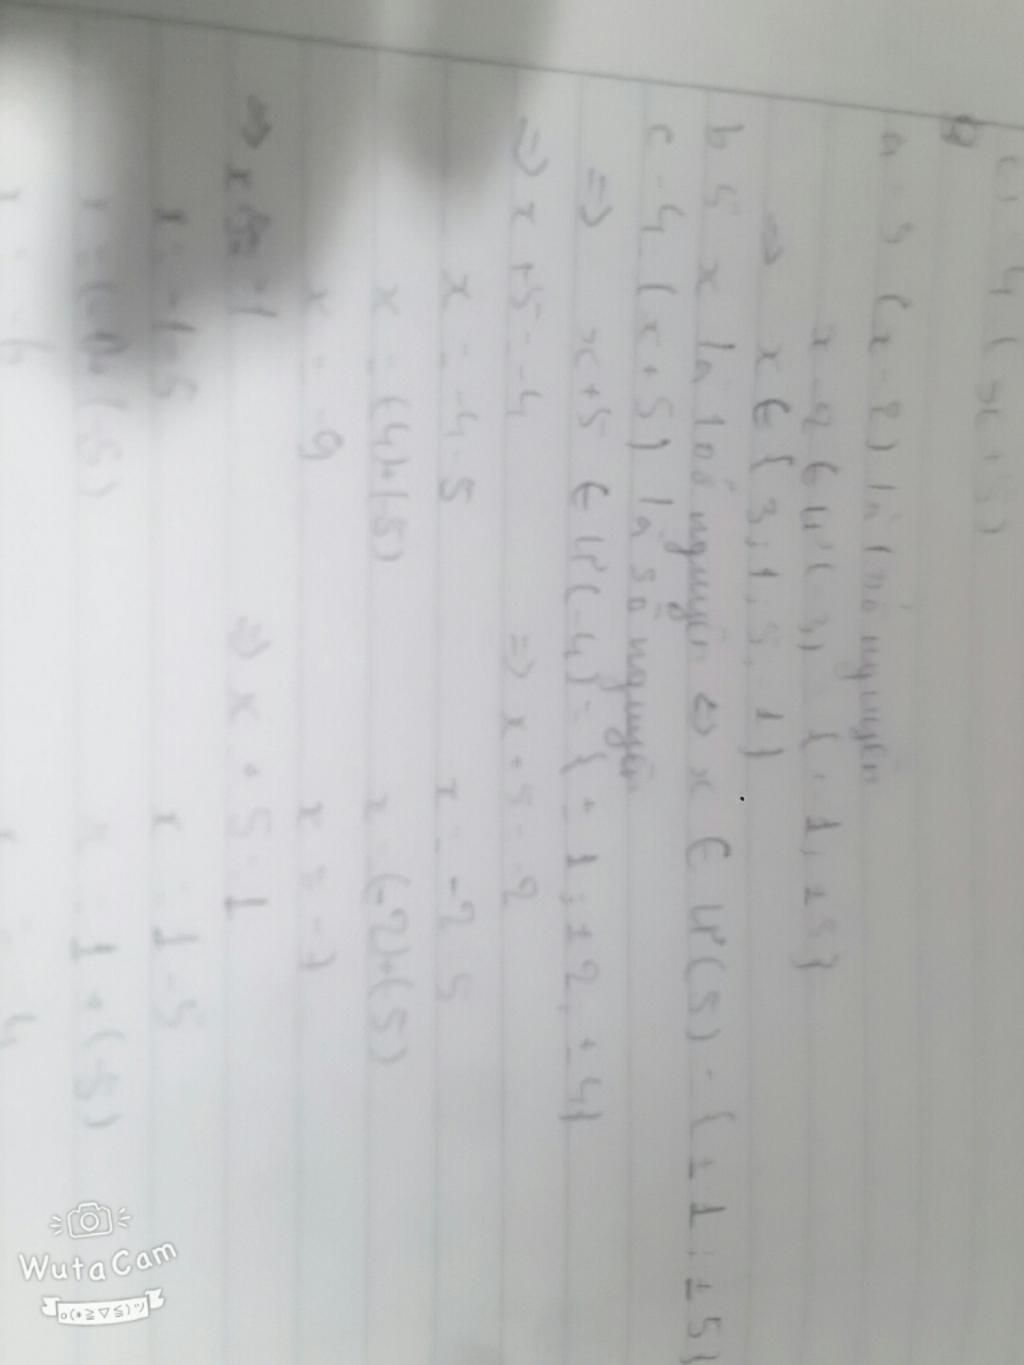 c) -4 (x+5)
a -3 (x-2) là số nguyên
x-2 ∈ Ư(-3) {±1, ±3}
=> x ∈ {3; 1; 5; -1}
b 5 x là số nguyên <=> x ∈ Ư(5) = {±1; ±5}
c -4 (x+5) là số nguyên
=> x+5 ∈ Ư(-4) = {±1; ±2; ±4}
=> x+5 = -4 => x+5 = -2
x = -4-5 x = -2 5
x = (4)+(-5) x = (-2)+(5)
x = -9 x = -7
=> x+5 = -1 => x+5 = 1
x = -1-5 x = 1-5
x = (-5) x = 1+(-5)
x = -6 4
WutaCam
o(*≧▽≦)ツ